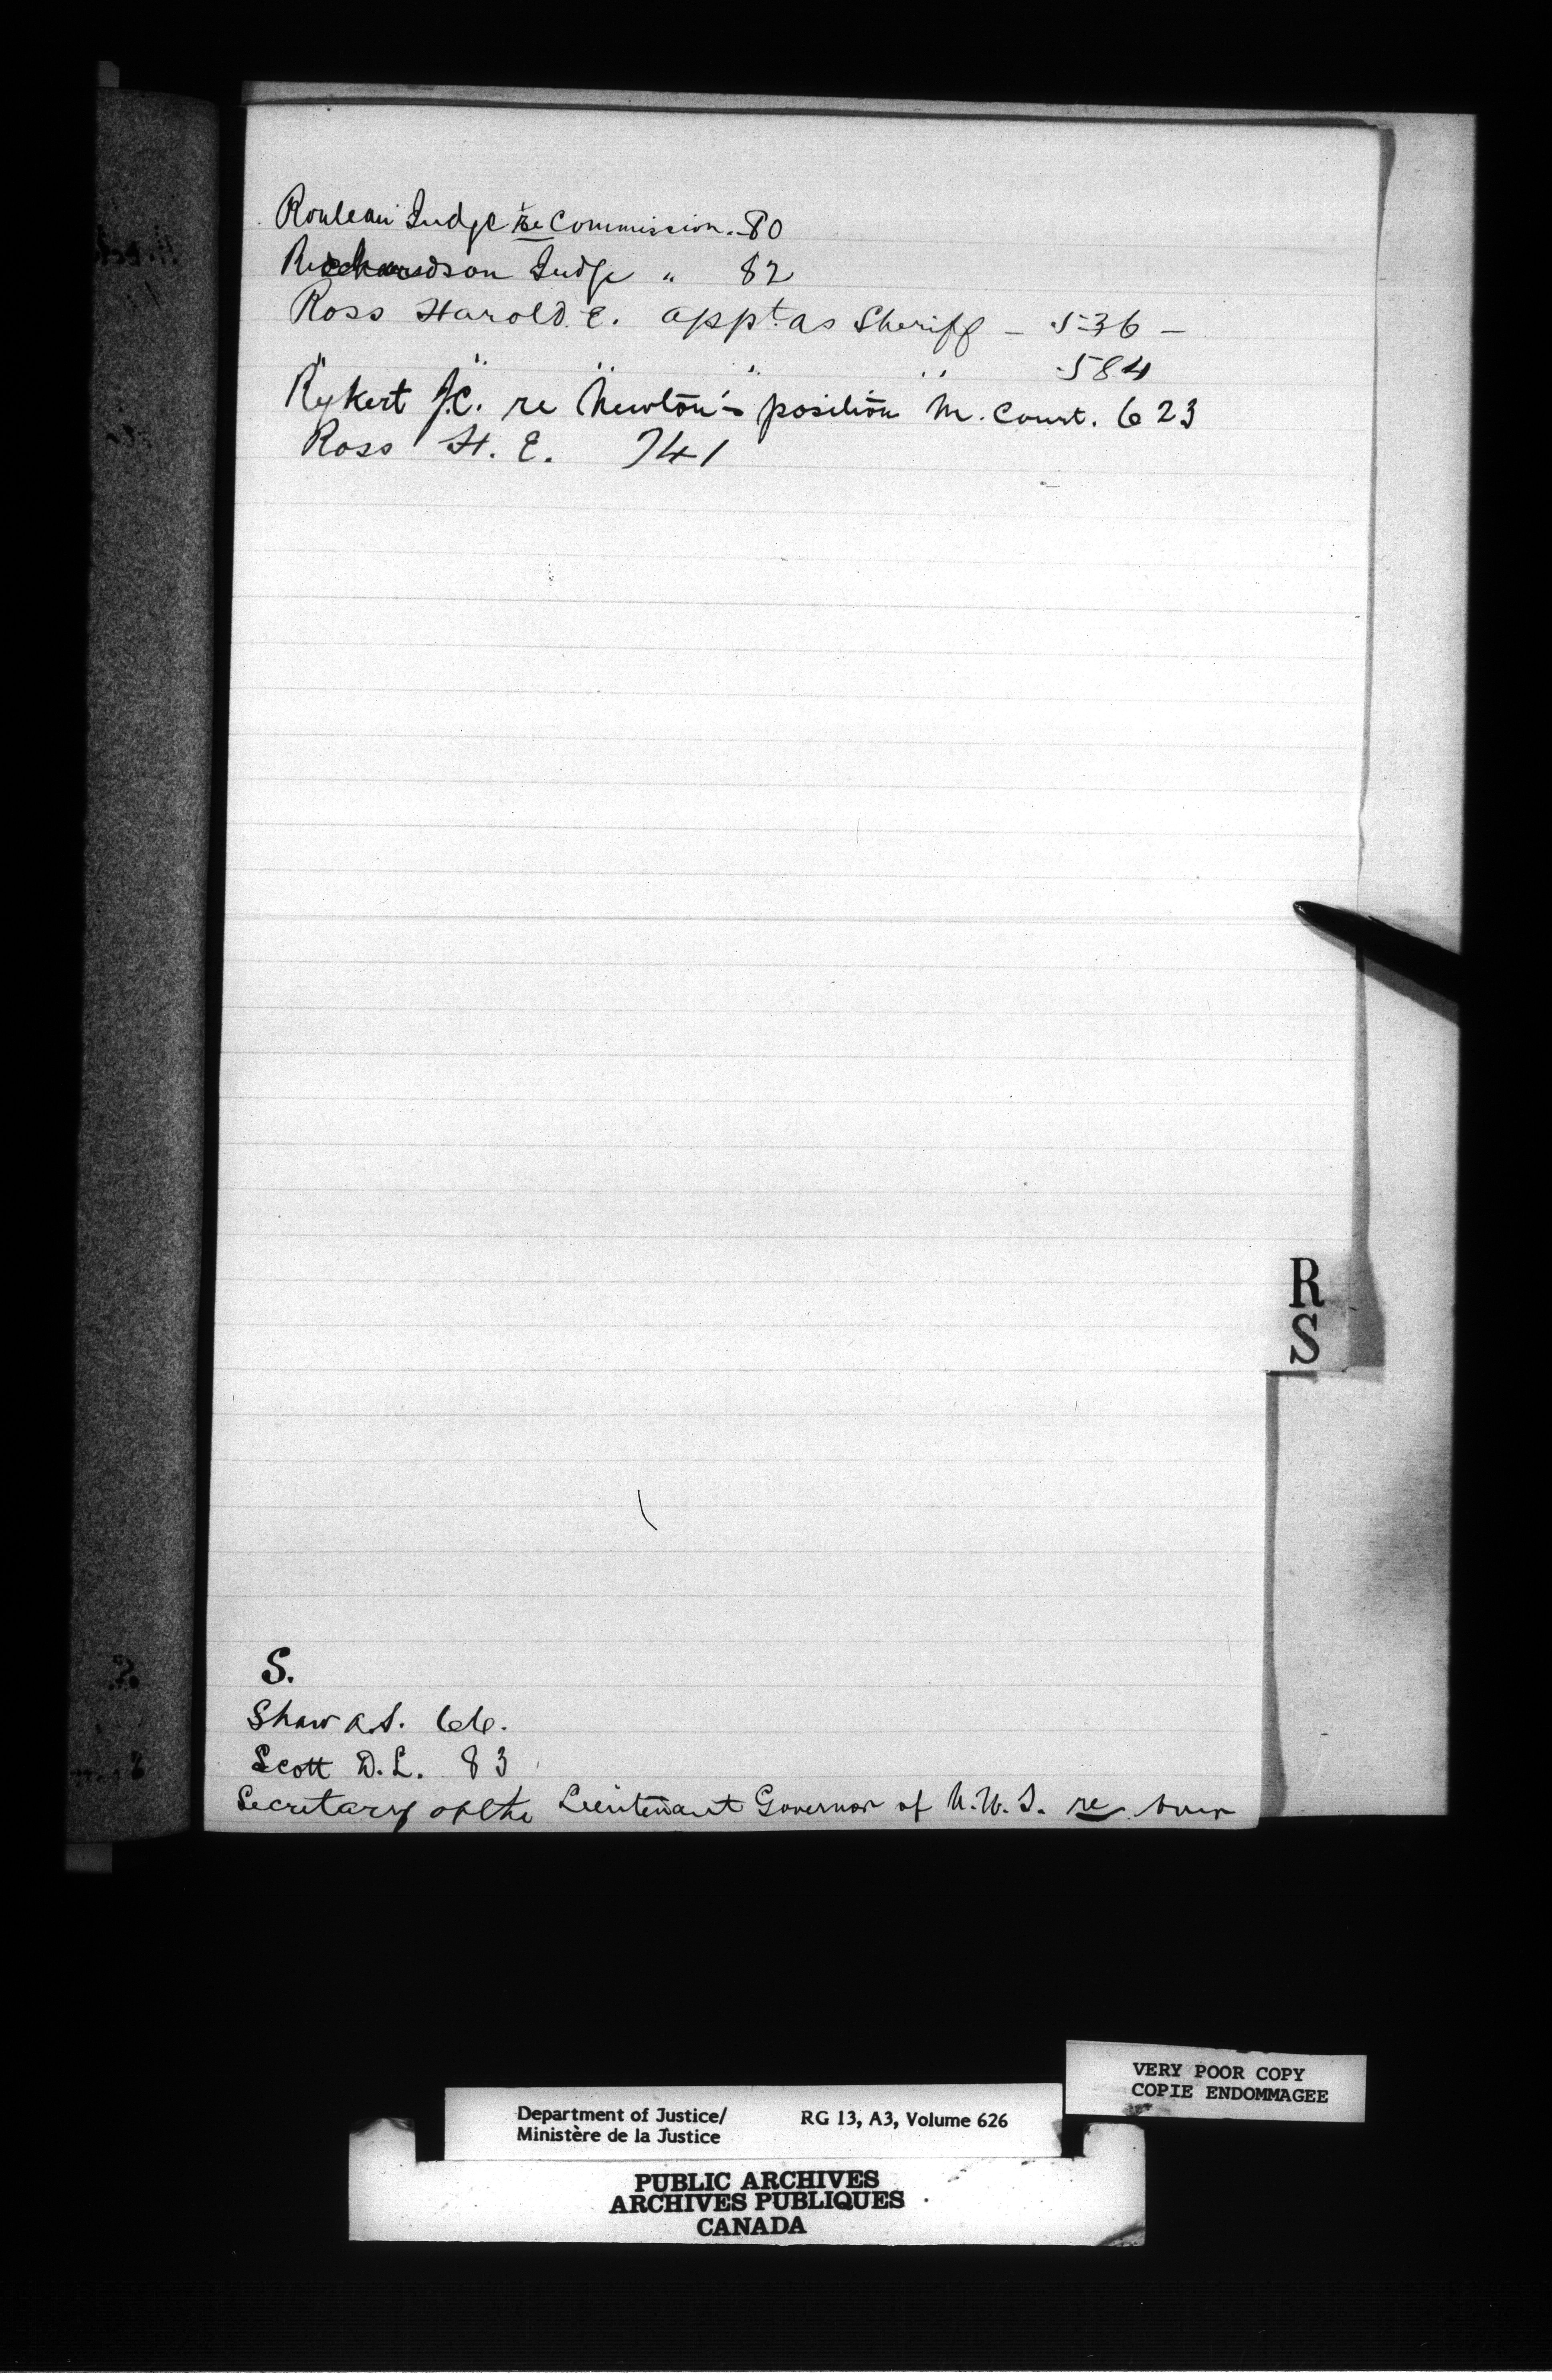 Rouleau Judge re Commission. 80
Richardson Judge " 82
Ross Harold E. appt. as Sheriff – 536 –
" " " " " 584
Rykert J.C. re Newton's position M. Court. 623
Ross H. E. 741
R
S
S.
Shaw A.S. 66.
Scott D.L. 83
Secretary of the Lieutenant Governor of N.W.T. re
VERY POOR COPY
COPIE ENDOMMAGEE
Department of Justice/ RG 13, A3, Volume 626
Ministère de la Justice
PUBLIC ARCHIVES
ARCHIVES PUBLIQUES
CANADA